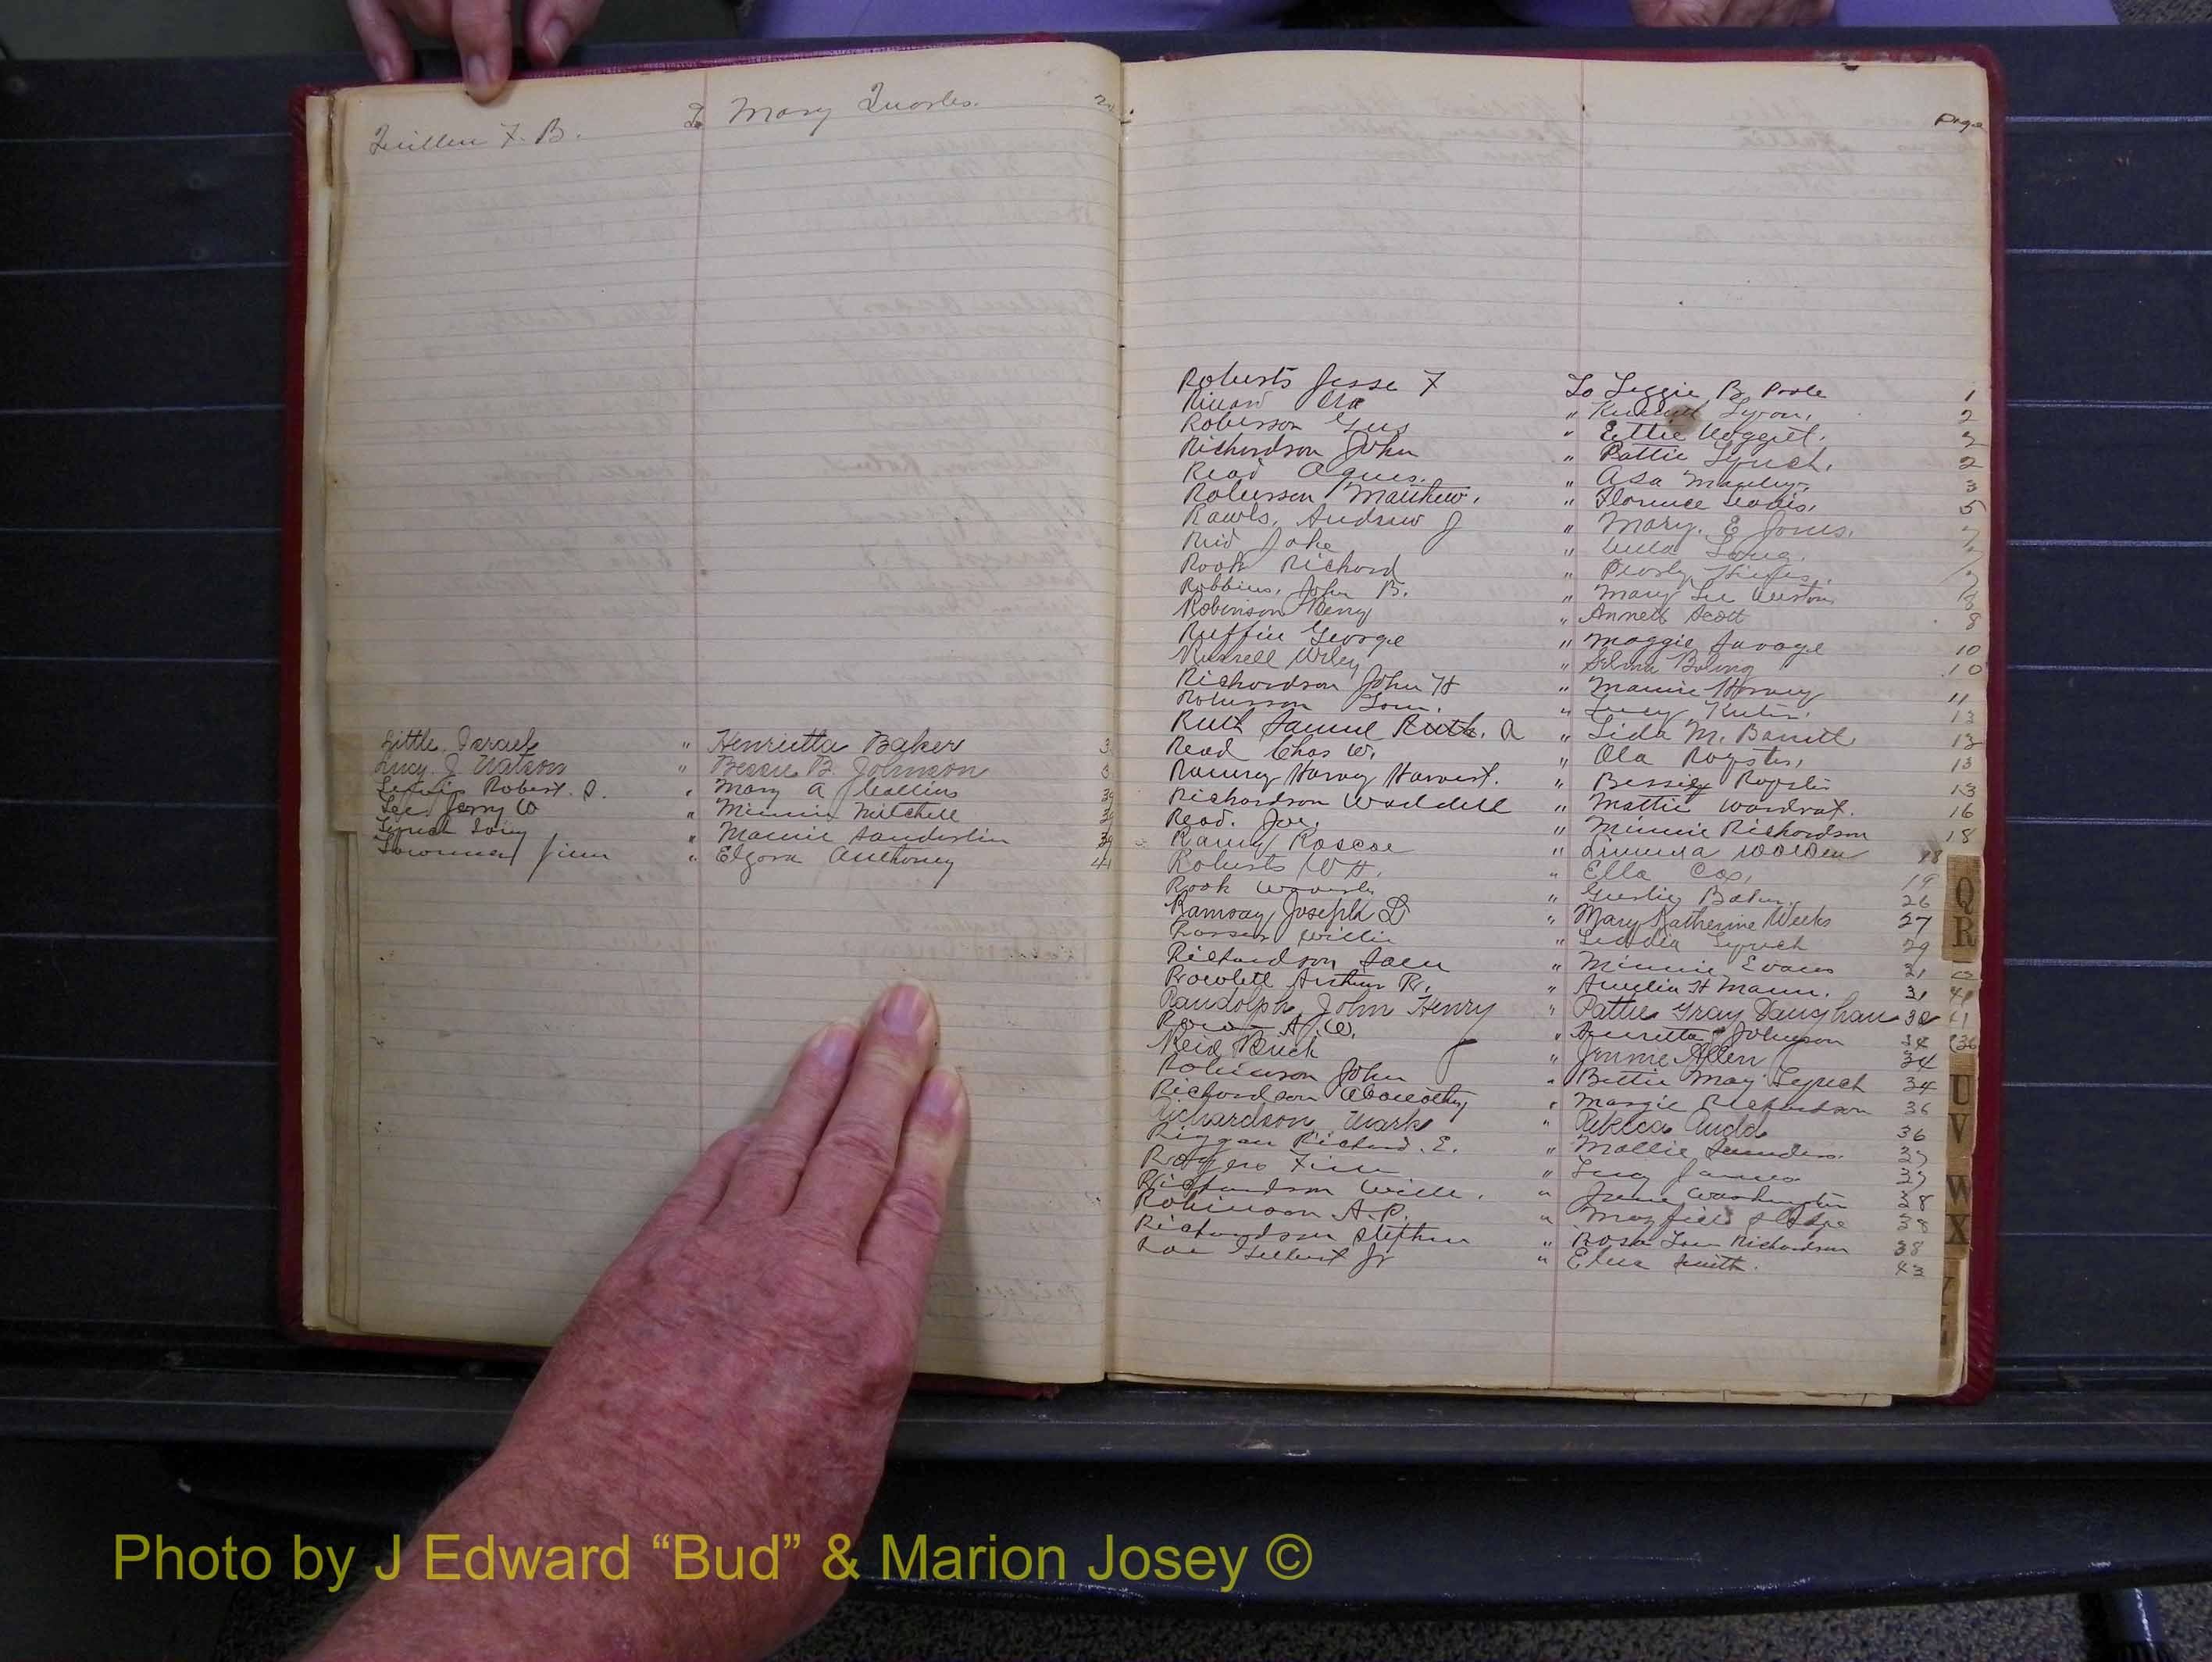 Quillen F. B. To Mary Quarles.
Little, Israel " Henrietta Baker 3
Lucy J. Watson " Bessie B. Johnson 3
Lewis Robert. " Mary A Collins 3
Lee Jerry W " Minnie Mitchell 3
Lynch " Mamie Sanderlin 39
Jim " Elgora Anthoney 44
Page
Roberts Jesse F To Lizzie B. Poole 1
Ora " 2
Roberson Gus " Ettie 2
Richardson John " Pattie Lynch. 2
Read Agnes. " Asa Manley. 3
Roberson Matthew. " Florence Davis. 5
Rawls, Andrew J " Mary. E Jones. 7
Reid Jake " Lula Long. 7
Rook Richard " Pearly 7
Robbins, John B. " Mary Lee
Robinson Henry " Annett Scott 8
Ruffin George " Maggie Savage 10
Russell Wiley " Selma Boling 10
Richardson John H " Mamie Harvey 11
Roberson " Lucy 13
Ruth Samuel Ruth. A " Lida M. Barrett 13
Read Chas W. " Ola Royster, 13
Harvey Harvest. " Bessie Royster 13
Richardson Waddell " Mattie 16
Read. Joe. " Minnie Richardson 18
Roscoe " Walden 18
Roberts W H. " Ella Cox, 19
Rook Waverly " 26
Ramsay, Joseph D " Mary Katherine Weeks 27
Rosser Willie " Lynch 29
Richardson Sam " Minnie Evans 31
Rowlett Arthur R. " Amelia H Mann. 31
Randolph, John Henry " Pattie Gray Daughan 32
A. W. " Henrietta Johnson 34
Reid Buck " Jennie Allen 34
Robinson John " Bettie May Lynch 34
Richardson " Margie Richardson 36
Richardson, Mark " Rebecca 36
Riggan Richard. E. " Mollie Saunders. 37
Rodgers " Lucy James 37
Richardson Willie. " Irene Washington 38
Robinson A. P. " 38
Richardson Stephen " Rosa Lou Richardson 38
Roe Gilbert Jr " Smith. 43
Q
R
U
V
W
X
Photo by J Edward “Bud” & Marion Josey ©